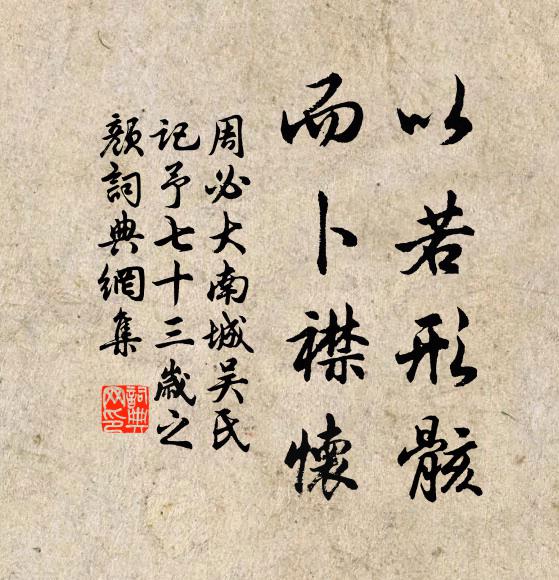 以若形骸
而卜襟懷
周必大南城吴氏
记予七十三歲之
顏詞典網集
詞典
网印